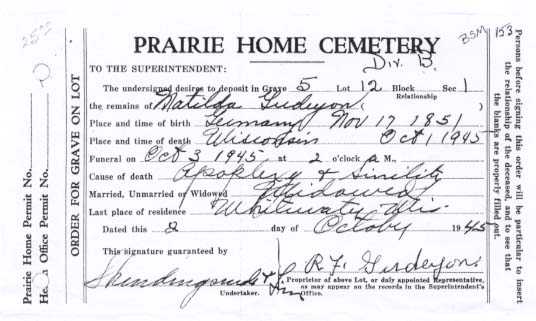 25.00
BSM 153
PRAIRIE HOME CEMETERY
Div. B.
TO THE SUPERINTENDENT:
The undersigned desires to deposit in Grave 5 Lot 12 Block Sec 1
Relationship
the remains of Matilda Gudeyon ( )
Place and time of birth Germany Nov 17 1851
Place and time of death Wisconsin Oct 1 1945
Funeral on Oct 3 1945 at 2 o'clock M.,
Cause of death Apoplexy & Sinility
Married, Unmarried or Widowed Widowed
Last place of residence Whitewater, Wis.
Dated this 2 day of October 1945
This signature guaranteed by
R.F. Gudeyon
Undertaker.
Proprietor of above Lot, or duly appointed Representative,
as may appear on the records in the Superintendent's
Office.
Prairie Home Permit No.
Office Permit No.
ORDER FOR GRAVE ON LOT
Persons before signing this order will be particular to insert
the relationship of the deceased, and to see that
the blanks are properly filled out.